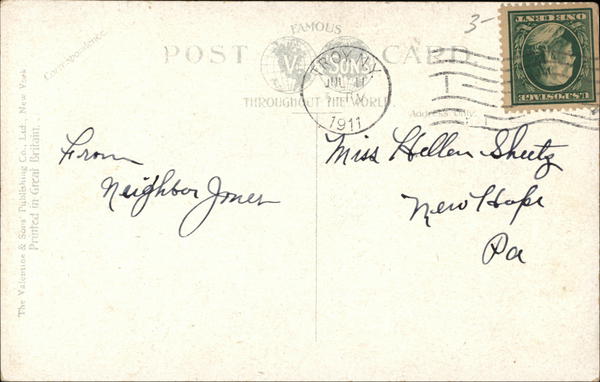 3-
FAMOUS
POST CARD
V SONS
THROUGHOUT THE WORLD.
Correspondence.
Address Only.
TROY, N.Y.
JUL
1911
ONE CENT
U.S. POSTAGE
From
Neighbor Jones
Miss Hellen Sheetz
New Hope
Pa
The Valentine & Sons' Publishing Co., Ltd., New York
Printed in Great Britain.